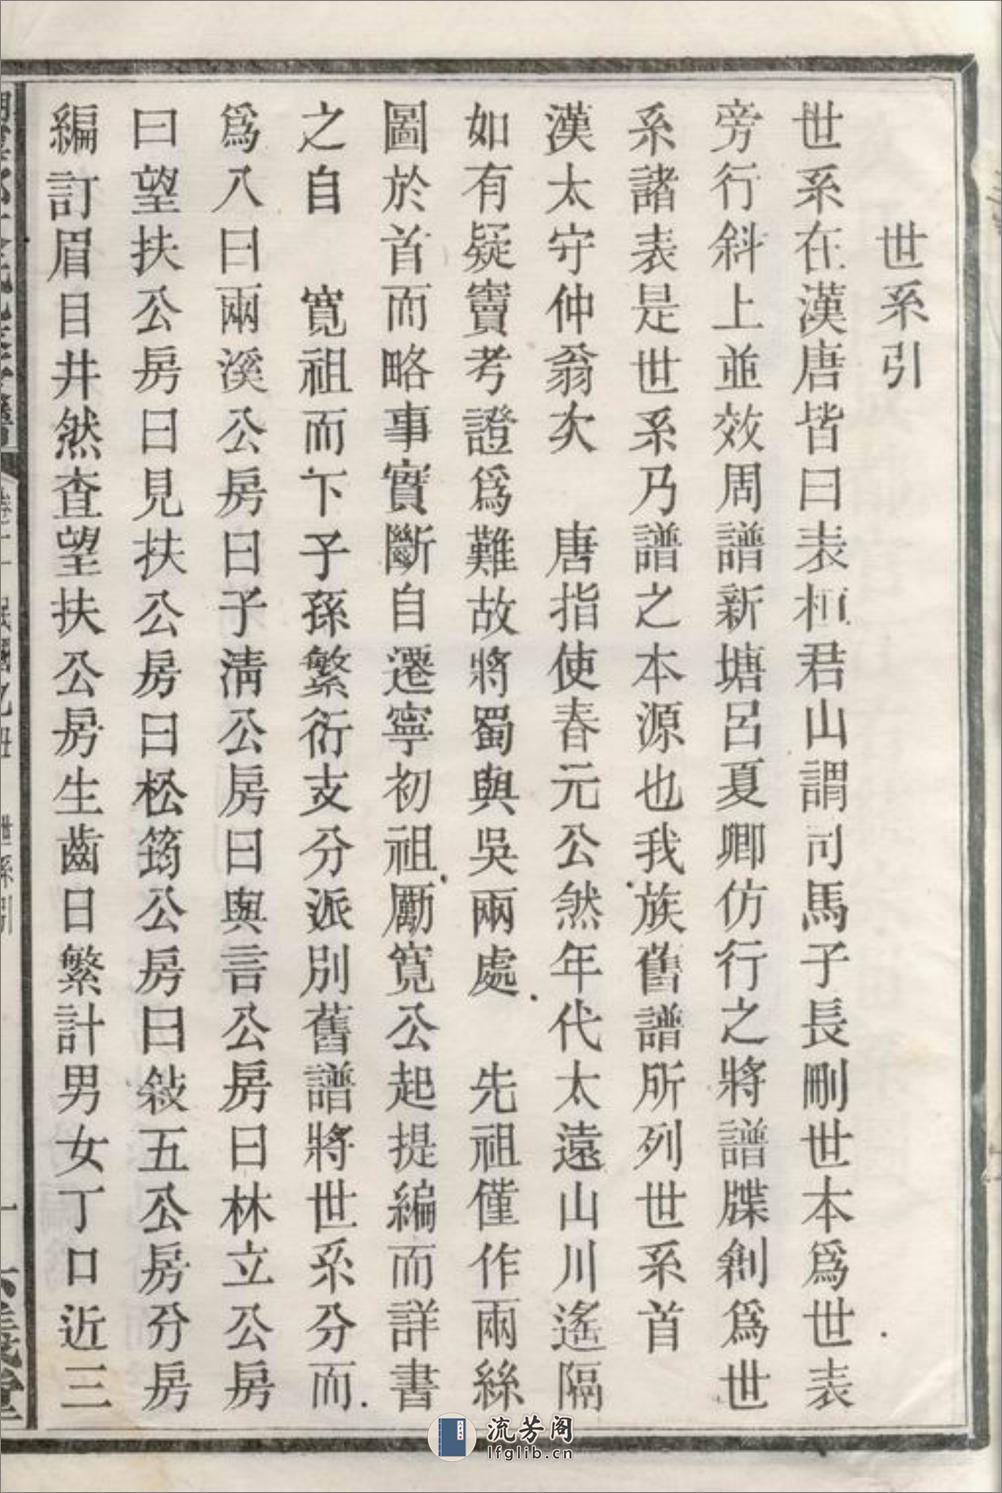 世系引
世系在漢唐皆曰表桓君山謂司馬子長刪世本爲世表
旁行斜上並效周譜新塘呂夏卿仿行之將譜牒創爲世
系諸表是世系乃譜之本源也我族舊譜所列世系首
漢太守仲翁次　唐指使春元公然年代太遠山川遙隔
如有疑竇考證爲難故將蜀與吳兩處　先祖僅作兩絲
圖於首而略事實斷自遷寧初祖勵寬公起提編而詳書
之自　寬祖而下子孫繁衍支分派別舊譜將世系分而
爲八曰兩溪公房曰子淸公房曰與言公房曰林立公房
曰望扶公房曰見扶公房曰松筠公房曰敍五公房分房
編訂眉目井然查望扶公房生齒日繁計男女丁口近三
世系引
六義堂
流芳阁
lfglib.cn